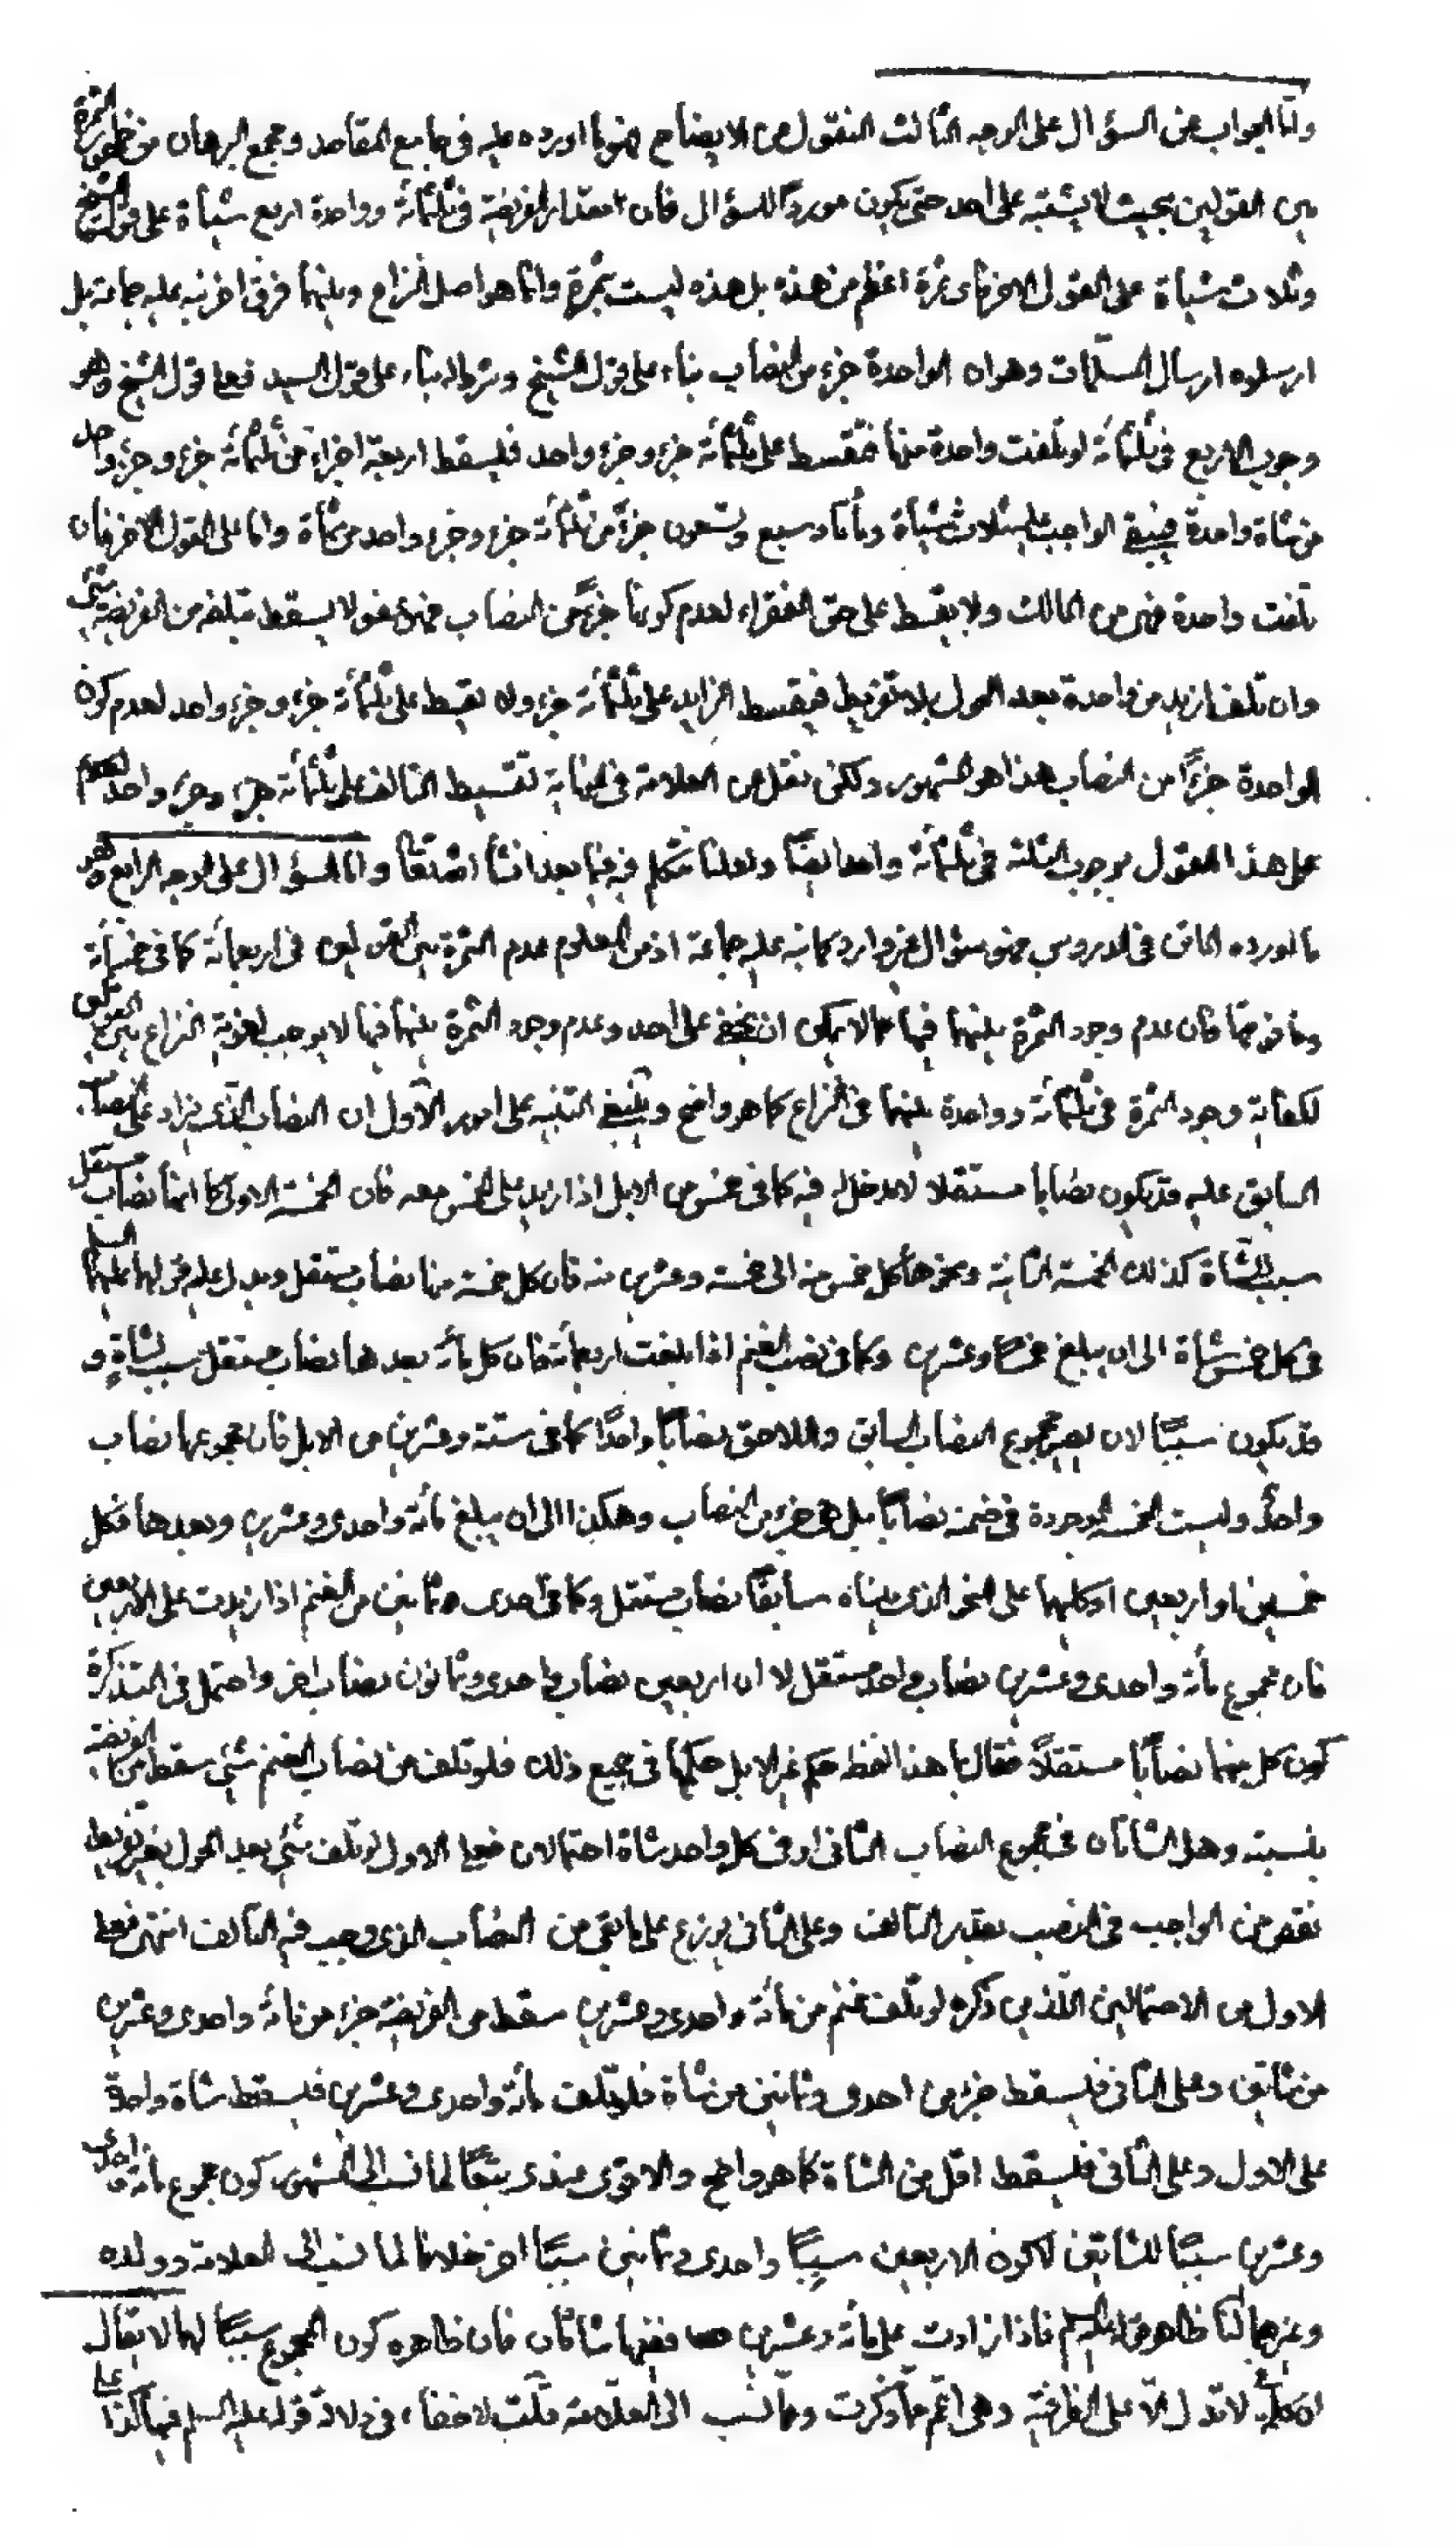 وامّا الجواب عن السؤال على الوجه الثالث المنقول من الايضاح فهو ما اورده عليه فى جامع المقاصد ومجمع البرهان من ظهور الثمرة
بين القولين بحيث لا يشتبه على احد حتى يكون موردًا للسؤال فان مقدار الفريضة فى ثلثمائة وواحدة اربع شياة على قول الشيخ
وثلاث شياة على القول الاخر فاى ثمرة اعظم من هذه بل هذه ليست بثمرة وانما هو اصل النزاع وبينهما فرق اخر نبه عليه جماعة بل
ارسلوه ارسال المسلّمات وهو ان الواحدة جزء من النصاب بناء على قول الشيخ وشرط له بناء على قول السيد فعلى قول الشيخ وهو
وجوب الاربع فى ثلثمائة لو تلفت واحدة منها فتقسط على ثلثمائة جزء وجزء واحد فليسقط اربعة اجزاء من ثلثمائة جزء وجزء واحد
من شاة واحدة فيبقى الواجب عليه ثلاث شياة ومأتان وسبع وتسعون جزءً من ثلثمائة جزء وجزء واحد من شاة وامّا على القول الاخر فان
تلفت واحدة فهى من المالك ولا يقسط على حق الفقراء لعدم كونها جزءً من النصاب فهى عفو لا يسقط بتلفه من الفريضة شئ
وان تلف ازيد من واحدة بعد الحول بلا تفريط فيقسط الزايد على ثلثمائة جزء ولا يقسط على ثلثمائة جزء وجزء واحد لعدم كون
الواحدة جزءًا من النصاب هذا هو المشهور ولكن نقل عن العلامة فى النهاية تقسيط التالف على ثلثمائة جزء وجزء واحد
على هذا القول بوجوب الثلثة فى ثلثمائة واحد ايضًا ولعلنا نتكلم فيه فيما بعد انشأ الله تعالى وامّا السؤال على الوجه الرابع وهو
ما اورده الماتن فى الدروس فهو سؤال غير وارد كما نبه عليه جماعة اذ من المعلوم عدم الثمرة بين القولين فى اربعمائة كما فى خمسمائة
وما فوقها فان عدم وجود الثمرة بينهما فيها مما لا يمكن ان يخفى على احد وعدم وجود الثمرة بينهما فيها لا يوجب لغوية النزاع بين القولين
لكفاية وجود الثمرة فى ثلثمائة وواحدة بينهما فى النزاع كما هو واضح وينبغى التنبيه على امور الاول ان النصاب الذى يزاد على النصاب
السابق عليه قد يكون نصابا مستقلا لا مدخل له فيه كما فى خمس من الابل اذا زيد على خمس معه فان الخمسة الاولى كما انها نصاب مستقل
سبب للشاة كذلك الخمسة الثانية ونحوها كل خمس منه الى خمسة وعشرين منه فان كل خمسة منها نصاب مستقل ويدل عليه قولهما عليهما السلم
فى كل خمس شاة الى ان يبلغ خمسًا وعشرين وكما فى نصب الغنم اذا بلغت اربعمائة فان كل مأة بعدها نصاب مستقل سبب لشاة و
قد يكون سببًا لان يصير مجموع النصاب السابق واللاحق نصابًا واحدًا كما فى ستة وعشرين من الابل فان مجموعها نصاب
واحدٌ وليست الخمسة الموجودة فى ضمنه نصابًا بل هى جزء من النصاب وهكذا الى ان يبلغ مأة واحدى وعشرين وبعدها فكل
خمسين او اربعين او كليهما على النحو الذى بيناه سابقًا نصاب مستقل وكما فى احدى وثمانين من الغنم اذا زيدت على الاربعين
فان مجموع مأة واحدى وعشرين نصاب واحد مستقل لا ان اربعين نصاب واحدى وثمانون نصاب اخر واحتمل فى التذكرة
كون كل منهما نصابًا مستقلاً فقال ما هذا لفظه حكم غير الابل حكمها فى جميع ذلك فلو تلف من نصاب الغنم شئ سقط من الفريضة
بنسبته وهل الشاتان فى مجموع النصاب الثانى او فى كل واحد شاة احتمالان فعلى الاول لو تلف شئ بعد الحول بغير تفريط
نقص من الواجب فى النصب بقدر التالف وعلى الثانى يوزع على ما بقى من النصاب الذى وجب فيه التالف انتهى فعلى
الاول من الاحتمالين اللذين ذكره لو تلف غنم من مأة واحدى وعشرين سقط من الفريضة جزء من مأة واحدى وعشرين
من شاتين وعلى الثانى فليسقط جزء من احدى وثمانين من شاة فلو تلف مأة واحدى وعشرين فليسقط شاة واحدة
على الاول وعلى الثانى فليسقط اقل من الشاة كما هو واضح والاقوى عندى تبعًا لما نسب الى المشهور كون مجموع مأة واحدى
وعشرين سببًا للشاتين لا كون الاربعين سببًا واحدى وثمانين سببًا اخر خلافا لما نسب الى العلامة وولده
وغيرهما لنا ظاهر قوله عليه السلم فاذا زادت على مأة وعشرين ففيها شاتان فان ظاهره كون المجموع سببًا لهما لا يقال
ان لا تدل الا على الظرفية وهى اعم مما ذكرت ومما نسب الى العلامة قلت لا خفاء فى دلالة قوله عليه السلم فيها كذا على